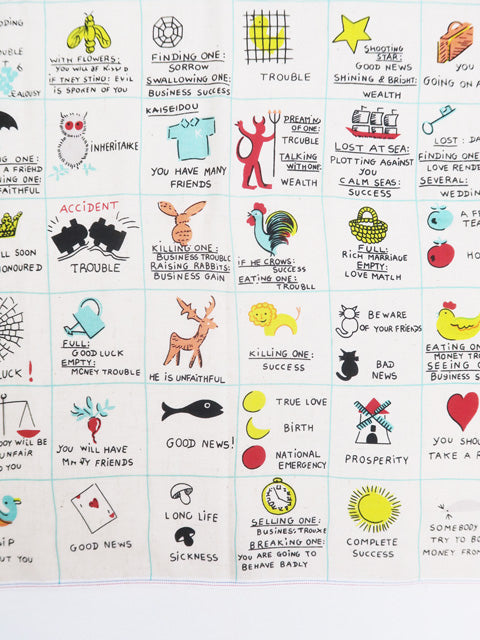 WITH FLOWERS:
YOU WILL BE
IF THEY STING: EVIL
IS SPOKEN OF YOU
FINDING ONE:
SORROW
SWALLOWING ONE:
BUSINESS SUCCESS
TROUBLE
SHOOTING
STAR:
GOOD NEWS
SHINING & BRIGHT:
WEALTH
YOU
GOING ON A
EALOUSY
ING ONE:
A FRIEND
ING ONE:
FAITHFUL
INHERITAHKE
KAISEIDOU
YOU HAVE MANY
FRIENDS
DREAMING
OF ONE:
TROUBLE
TALKING
WITH ONE:
WEALTH
LOST AT SEA:
PLOTTING AGAINST
YOU
CALM SEAS:
SUCCESS
LOST: DA
FINDING ONE
LOVE RENDE
SEVERAL:
WEDDIN
LL SOON
HONOURED
ACCIDENT
TROUBLE
KILLING ONE:
BUSINESS TROUBLE
RAISING RABBITS:
BUSINESS GAIN
IF HE CROWS:
SUCCESS
EATING ONE:
TROUBLL
FULL:
RICH MARRIAGE
EMPTY:
LOVE MATCH
A FE
TEA
HO
LUCK!
FULL:
GOOD LUCK
EMPTY:
MONEY TROUBLE
HE IS UNFAITHFUL
KILLING ONE:
SUCCESS
BEWARE
OF YOUR FRIENDS
BAD
NEWS
EATING ON
MONEY TRO
SEEING O
BUSINESS S
ODY WILL BE
UNFAIR
TO YOU
YOU WILL HAVE
FRIENDS
GOOD NEWS!
TRUE LOVE
BIRTH
NATIONAL
EMERGENCY
PROSPERITY
YOU SHOU
TAKE A R
SIP
OUT YOU
GOOD NEWS
LONG LIFE
SICKNESS
SELLING ONE:
BUSINESS: TROUXE
BREAKING ONE:
YOU ARE GOING TO
BEHAVE BADLY
COMPLETE
SUCCESS
SOMEBODY
TRY TO BO
MONEY FROM